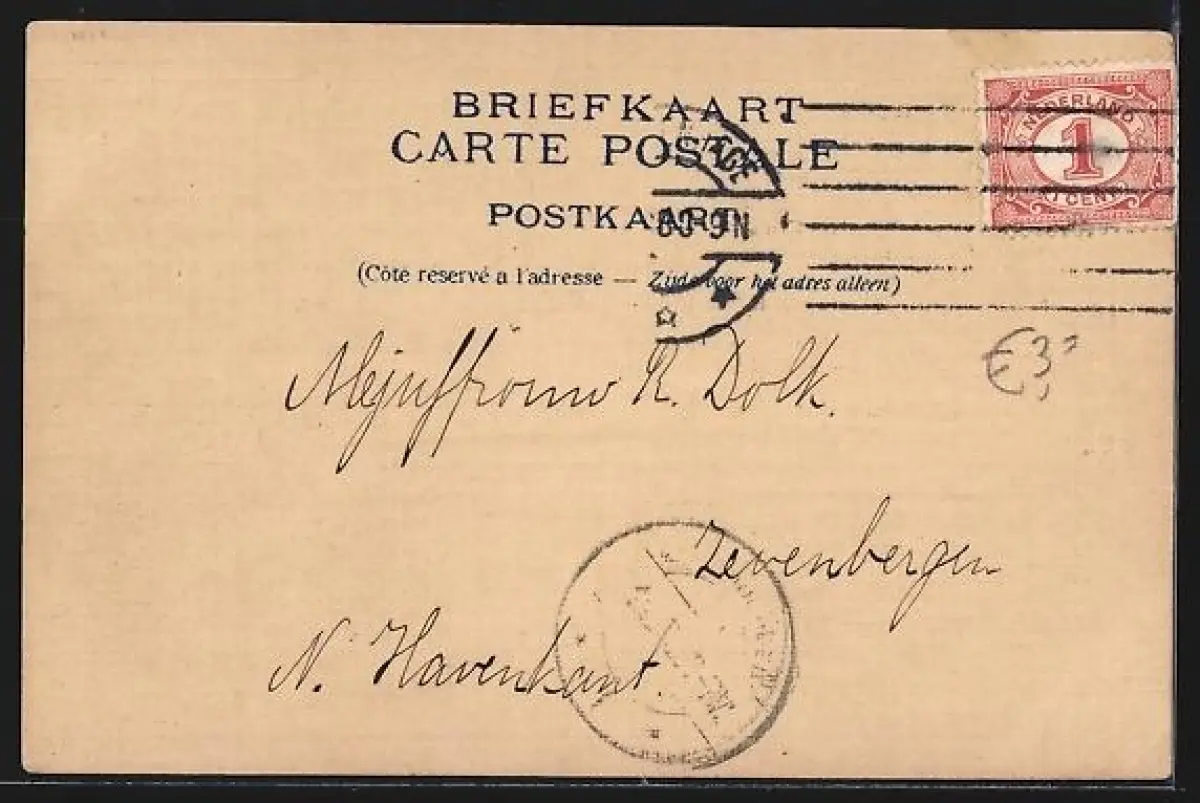 BRIEFKAART
CARTE POSTALE
POSTKAART
(Côte reservé a l'adresse — Zijde voor het adres alleen)
NEDERLAND
1
CENT
8-9N
€3,=
Mejuffrouw R. Dolk.
Zevenbergen
N. Havenkant